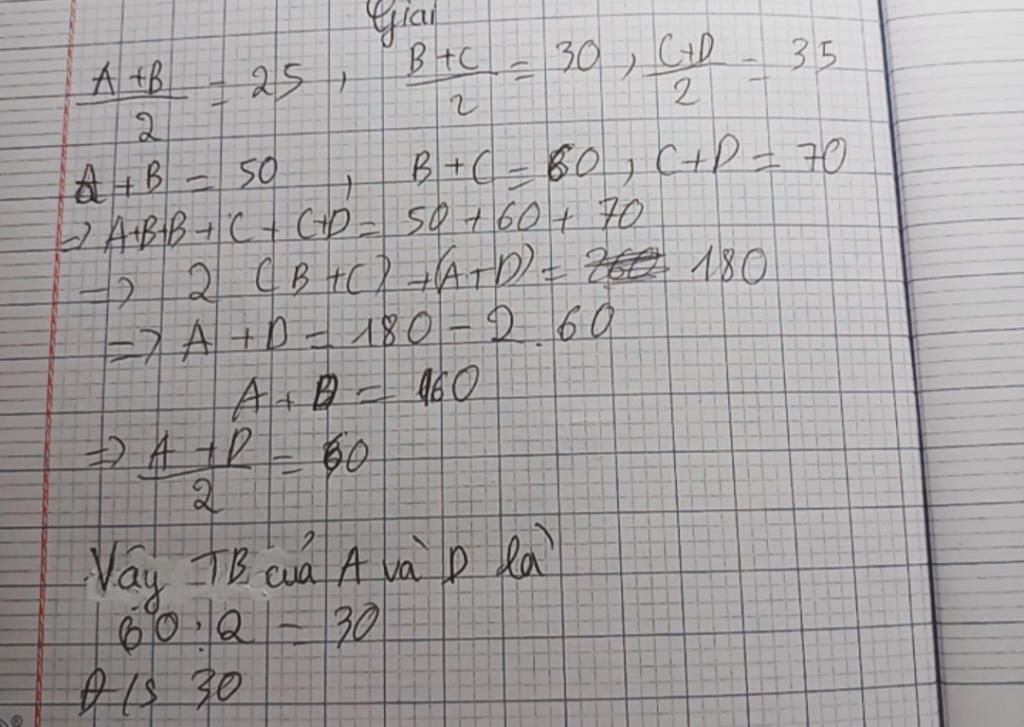 Giải
A+B/2 = 25, B+C/2 = 30, C+D/2 = 35
A+B = 50, B+C = 60, C+D = 70
=> A+B+B+C+C+D = 50+60+70
=> 2 (B+C) +(A+D) = 180
=> A+D = 180 - 2.60
A+D = 60
=> A+D/2 = 60
Vậy TB của A và D là
60:2 = 30
Đ/S 30